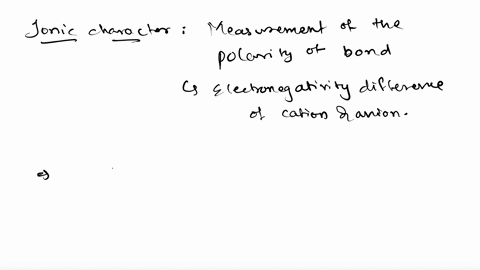 Ionic character : Measurement of the
polarity of bond
↳ Electronegativity difference
of cation & anion.
⇒